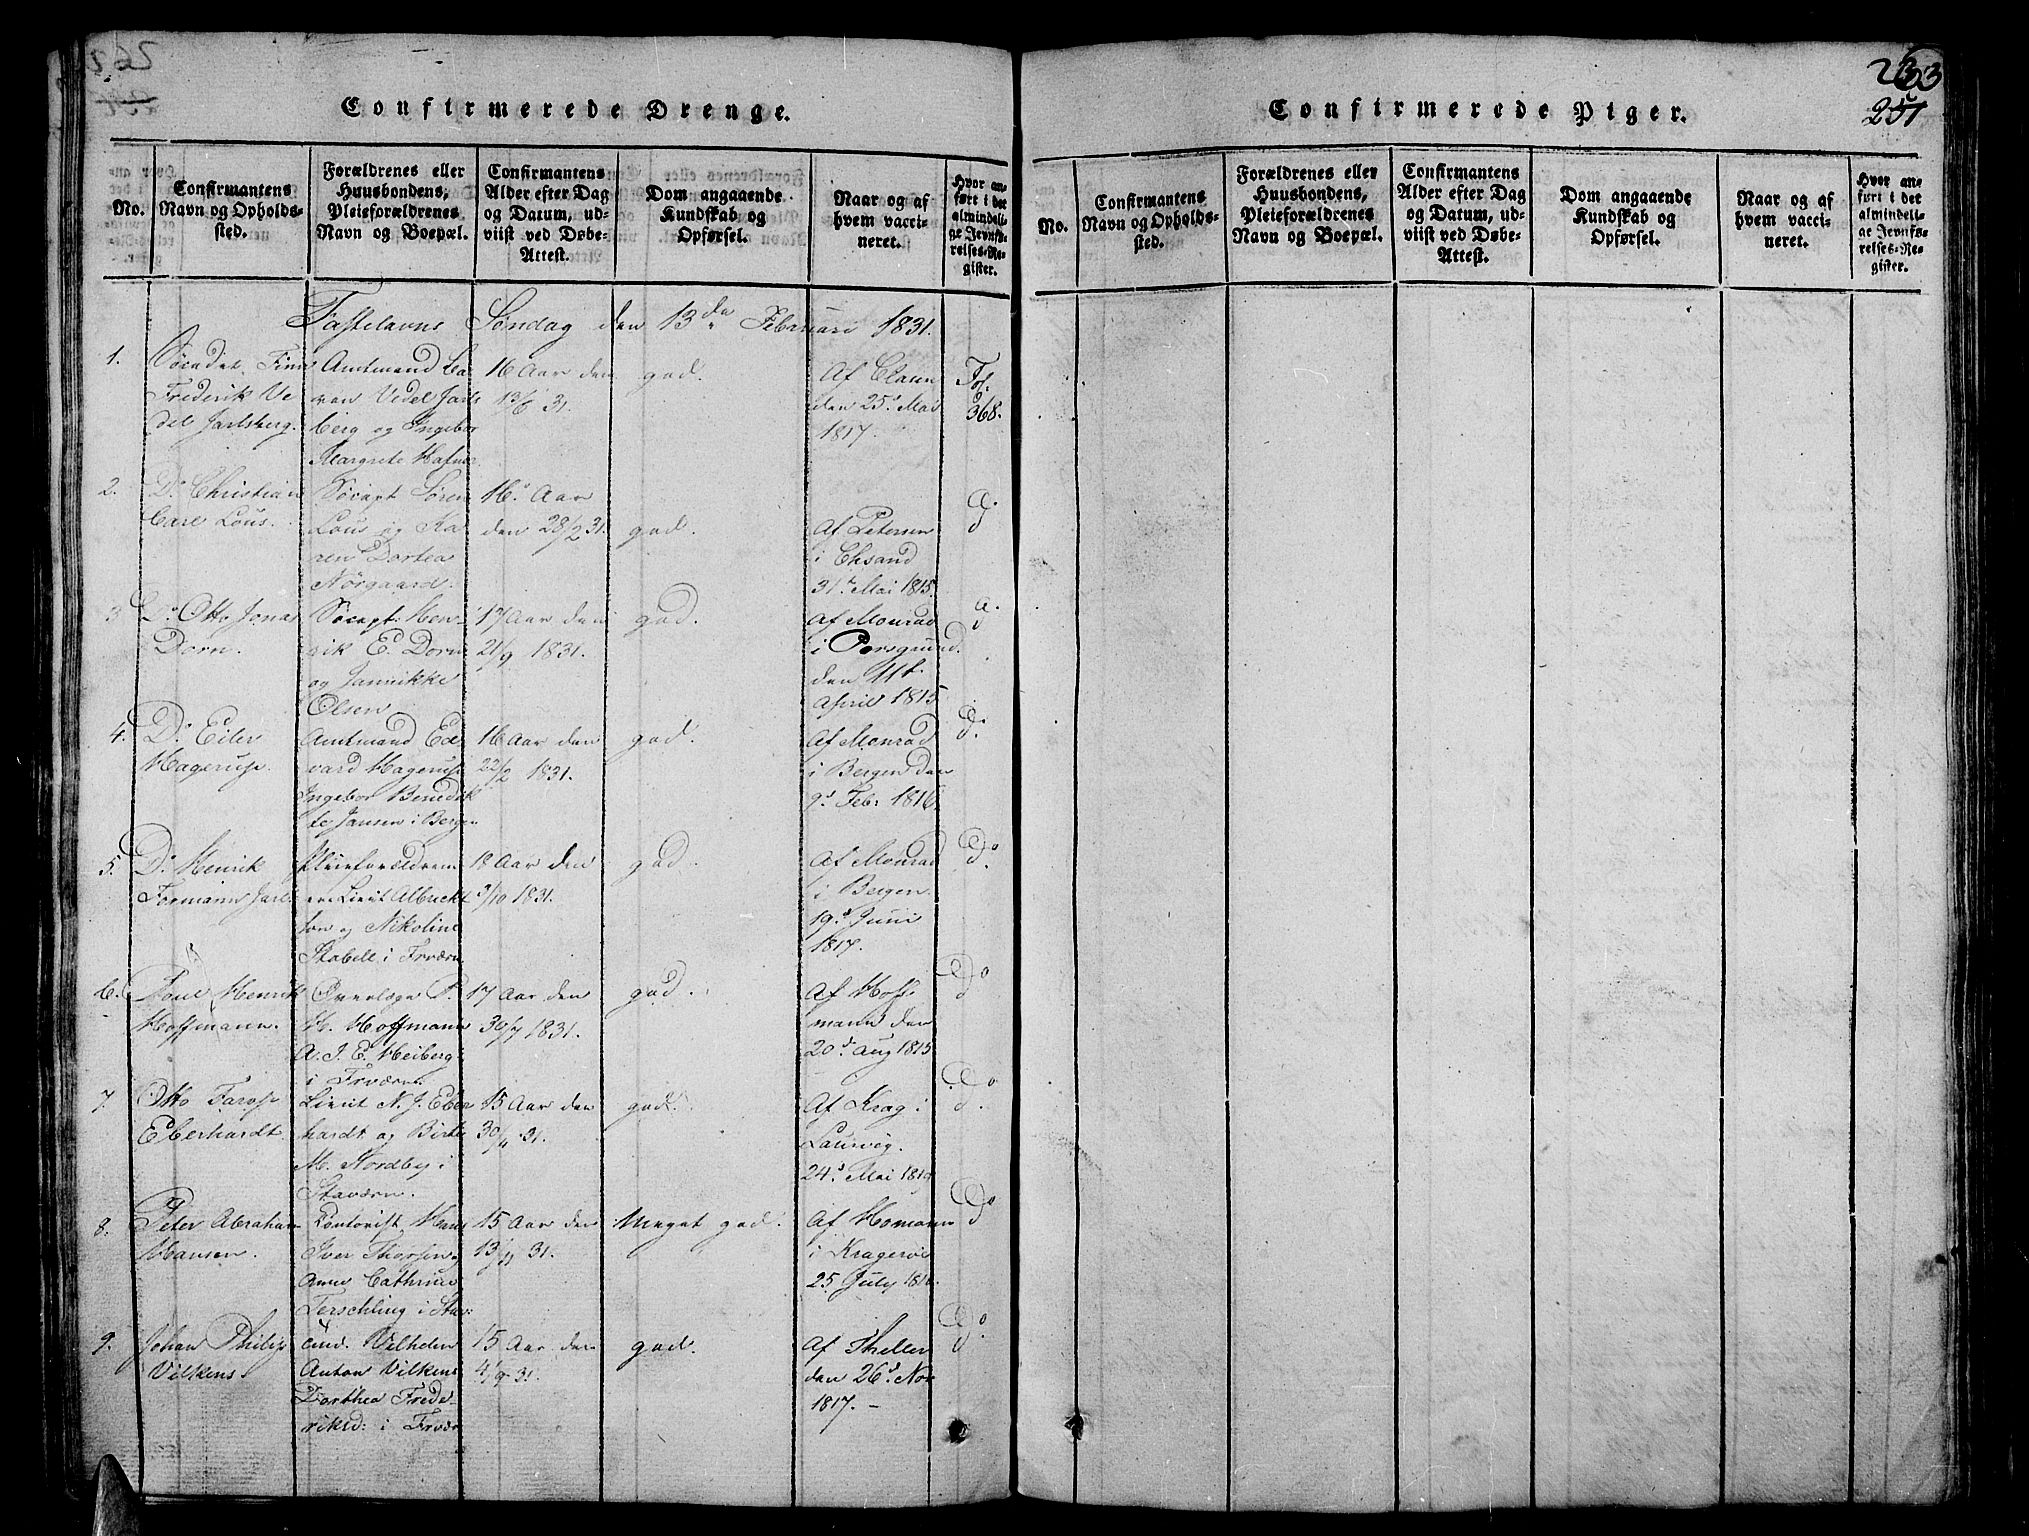 Confirmerede Drenge.
No.
Confirmantens
Navn og Opholds-
sted.
Forældrenes eller
Huusbondens,
Pleieforældrenes
Navn og Boepæl.
Confirmantens
Alder efter Dag
og Datum, ud-
viist ved Døbe-
Attest.
Dom angaaende
Kundskab og
Opførsel.
Naar og af
hvem vacci-
neret.
Hvor an-
ført i det
almindeli-
ge Jevnfø-
relses-Re-
gister.
Fastelavns Søndag den 13de Februari 1831.
1.
Søcadet Finn
Frederik Ve
del Jarlsberg.
Amtmand Ba
ron Vedel Jarls
berg og Ingebor
Margrete Hafner
16 Aar den
13/6 31.
god.
Af Clasen
den 25d Mai
1817.
Fol.
368.
2.
Do Christian
Carl Lous.
Søcapt Søren
Lous og Ka
ren Dortea
Nörgaard.
16 Aar
den 28/2 31.
god.
Af Petersen
i
31te Mai 1815
Do
3
Do Otto Jonas
Dorn.
Søcapt: Hen
rik E. Dorn
og Jannikke
Olsen
17 Aar den
21/9 1831.
god.
Af Monrad
i Porsgrund.
den 11t
April 1815
Do
4.
Do Eiler
Hagerup.
Amtmand Ed
vard Hagerup
Ingebor Benedik
te Jansen i Bergen
16 Aar den
22/2 1831.
god.
Af Monrad
i Bergen den
9d Feb: 1816
Do
5.
Do Henrik
Formann Jarl
Pleieforældrene
ere Lieut Albrickt
son og Nikoline
Stabell i Frværn
18 Aar den
3/10 1831.
god.
Af Monrad
i Bergen
19d Juni
1817.
Do
6.
Poul Henrik
Hoffmann.
Overlæge P.
H. Hoffmann
A. J. E. Heiberg
i Frværn
17 Aar den
30/7 1831.
god.
Af Hoff
mann den
20d Aug 1815
Do
7.
Otto Tarop
Eberhardt
Lieut N. J. Eber
hardt og Birte
M. Nordby i
Staværn.
15 Aar den
30/11 31.
god.
Af Krag i
Laurvig.
24d Mai 1819
Do
8.
Peter Abraham
Hansen.
Contorist Hans
Iver Thorsen
Anne Cathrine
Terschling i Stav:
15 Aar den
13/11 31.
Meget god.
Af Homann
i Kragerøe
25 July 1816.
Do
9.
Johan Philip
Vilkens
Vilhelm
Anton Vilkens
Dorthea Frede-
riksd: i Frværn
15 Aar den
4/9 31.
god.
Af Theller
den 26d Nov
1817. –
Do
Confirmerede Piger.
251
No.
Confirmantens
Navn og Opholds-
sted.
Forældrenes eller
Huusbondens,
Pleieforældrenes
Navn og Boepæl.
Confirmantens
Alder efter Dag
og Datum, ud-
viist ved Døbe-
Attest.
Dom angaaende
Kundskab og
Opførsel.
Naar og af
hvem vacci-
neret.
Hvor an-
ført i det
almindeli-
ge Jevnfø-
relses-Re-
gister.